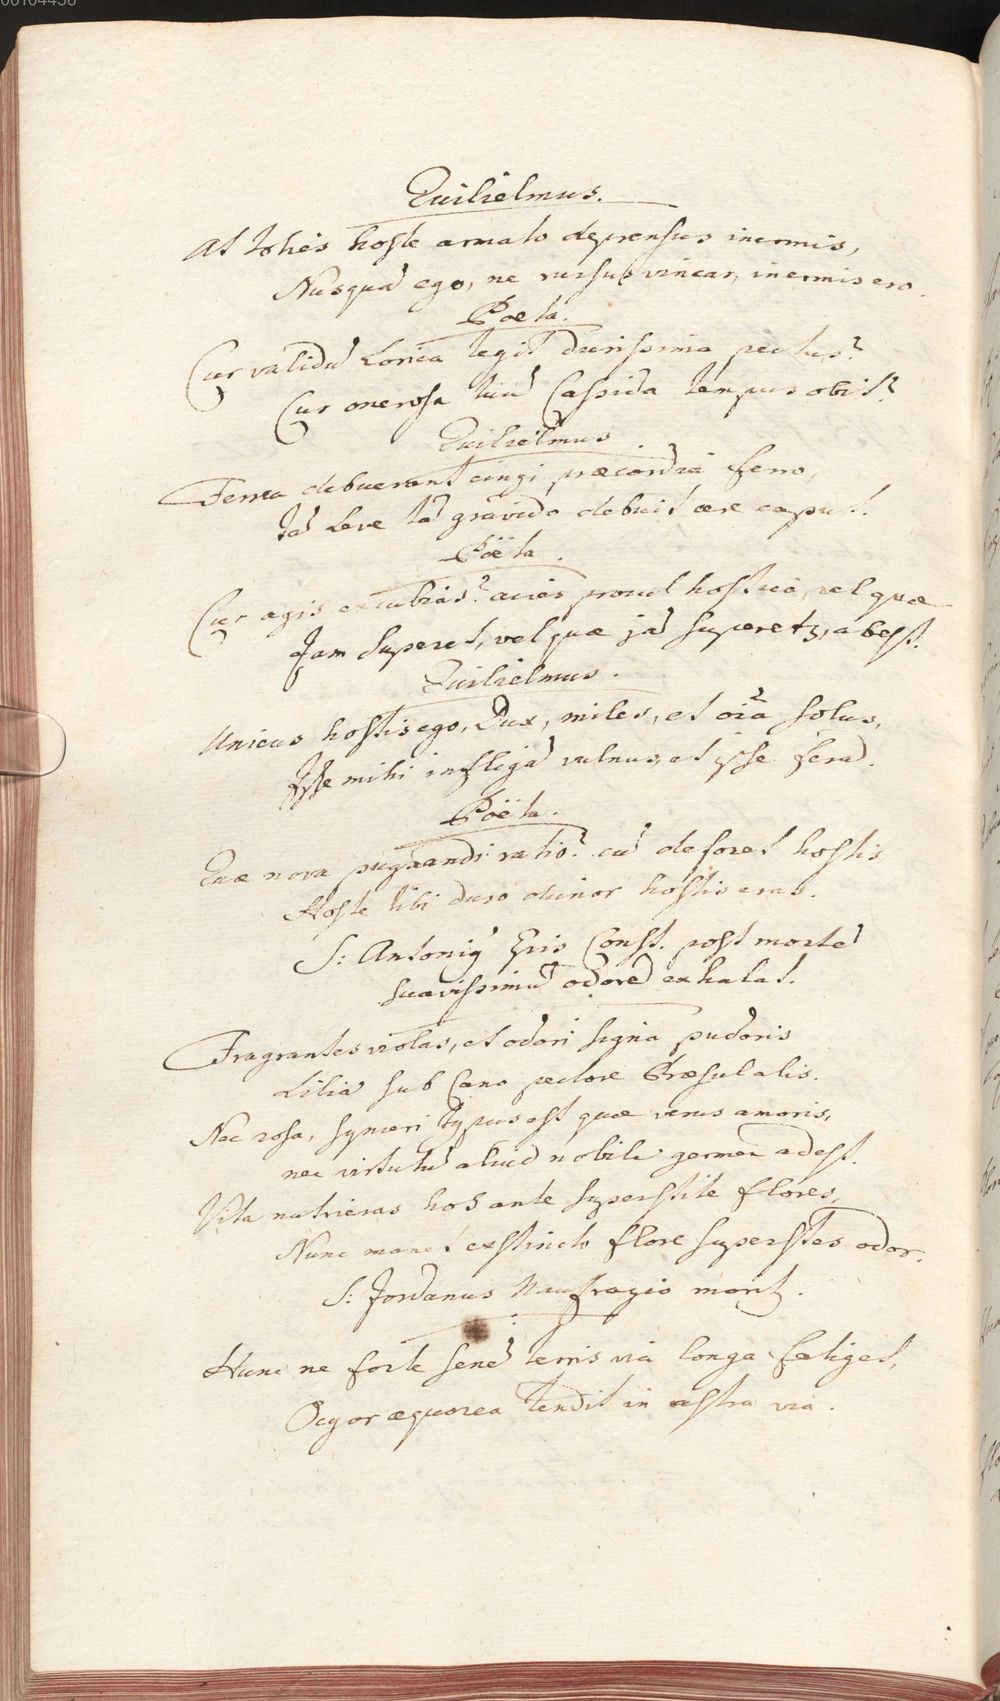 00104456
Guilielmus.
At toties hoste armato deprensus inermis,
Nusquā ego, ne rursus vincar, inermis ero.
Poeta.
Cur validū Lorica tegit durissima pectus?
Cur onerosa tuū Cassida tempus obit?
Guilielmus.
Ferrea debuerant cingi præcordia ferro,
Tā leve tā gravido debuit ære caput.
Poëta.
Cur agis excubias? acies procul hostica, vel quæ
Jam superet, vel quæ jā superetꝫ, abest.
Guilielmus.
Unicus hostis ego, Dux, miles, et oīa solus,
Ipse mihi infligā vulnus, et ipse ferā.
Poëta.
Quæ nova pugnandi ratio? cū deforet hostis
Hoste tibi duro durior hostis eras.
S: Antoniꝰ Epis Const. post mortē
suavissimū odorē exhalat.
Fragrantes violas, et odori signa pudoris
Lilia sub cano pectore Præsul alis.
Nec rosa, synceri typus est quæ verus amoris,
nec virtutū aliud nobile germen adest.
Vita nutrieras hos ante superstite flores,
Nunc manet exstincto flore superstes odor.
S: Jordanus Naufragio moritꝫ.
Hunc ne forte senē terris via longa fatiget,
Ocyor æquorea tendit in astra via.